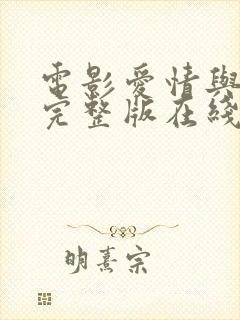 電影愛情與
完整版在綫
明熹宗